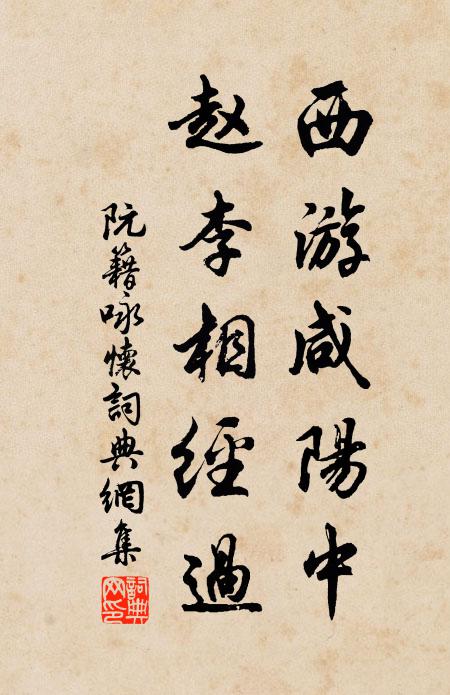 西游咸陽中
赵李相經過
阮籍咏懷詞典網集
詞典网印